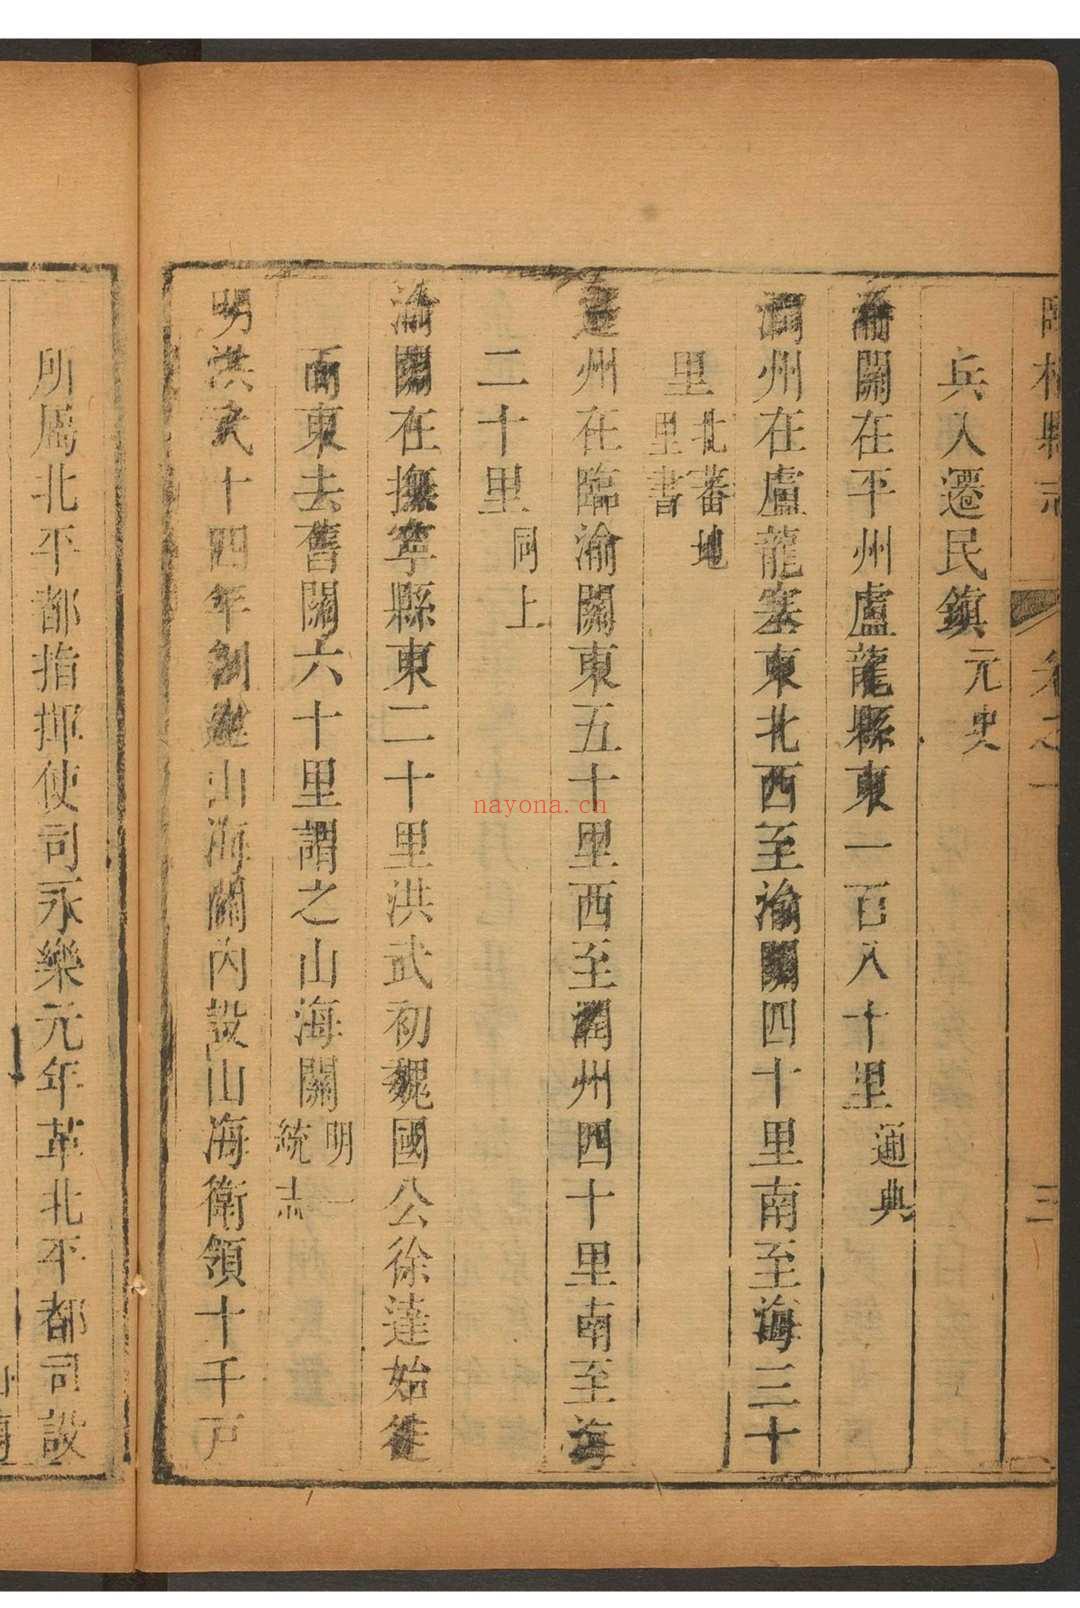 榆縣志 卷之一 三
兵入遷民鎮元史
渝關在平州盧龍縣東一百八十里通典
潤州在盧龍塞東北西至渝關四十里南至海三十
里北蕃地里書
遷州在臨渝關東五十里西至潤州四十里南至海
二十里同上
渝關在撫寧縣東二十里洪武初魏國公徐達始徙
而東去舊關六十里謂之山海關明一統志
明洪武十四年創建山海關內設山海衛領十千戶
所屬北平都指揮使司永樂元年革北平都司設
nayona.cn